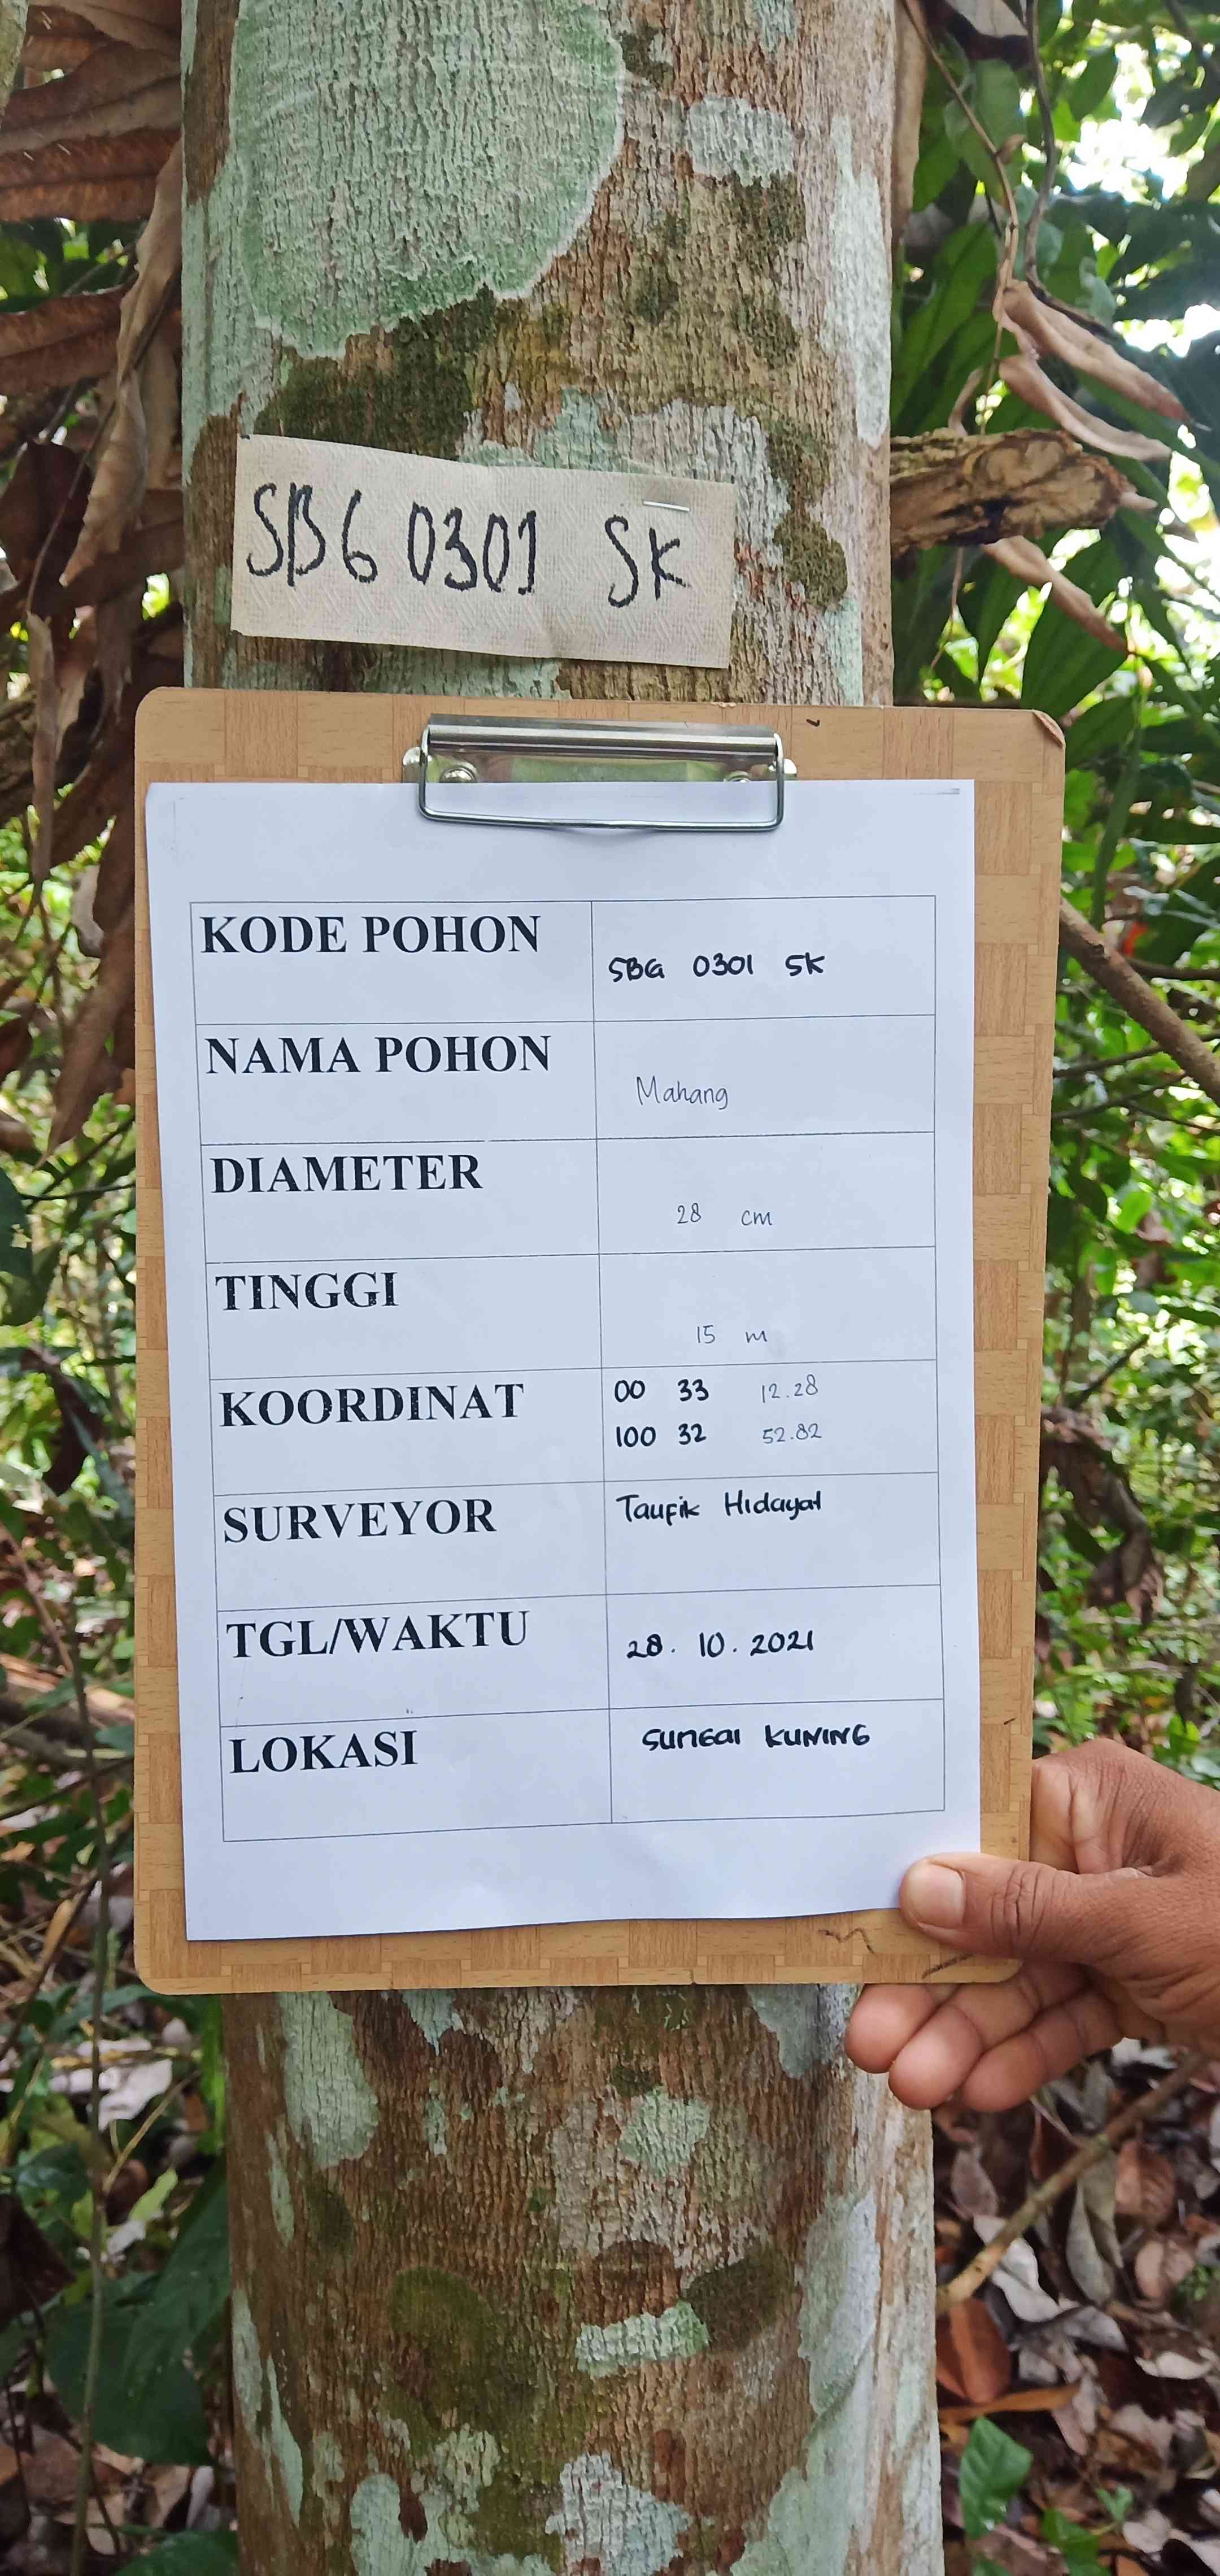 SBG 0301 SK
KODE POHON
SBG 0301 SK
NAMA POHON
Mahang
DIAMETER
28 cm
TINGGI
15 m
KOORDINAT
00 33 12.28
100 32 52.82
SURVEYOR
Taufik Hidayat
TGL/WAKTU
28. 10. 2021
LOKASI
SUNGAI KUNING